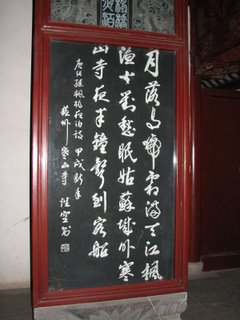 月落烏啼霜滿天江楓
漁火對愁眠姑蘇城外寒
山寺夜半鐘聲到客船
唐張繼楓橋夜泊詩 甲戌新年
蘇州寒山寺 性空书